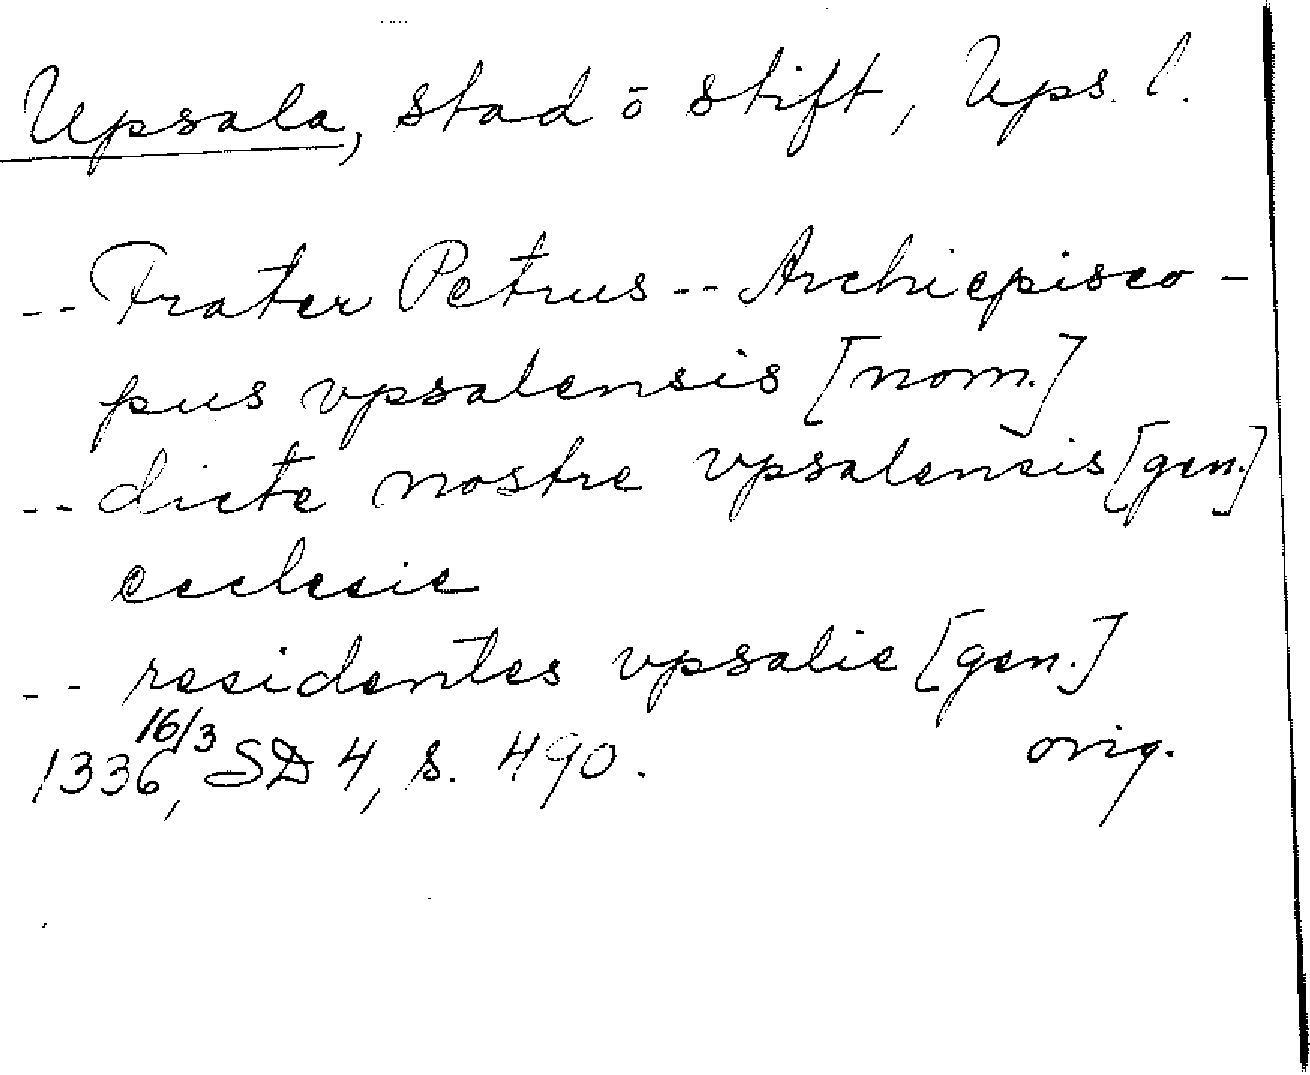 Upsala, stad ō stift, Ups. l.
-- Frater Petrus -- Archiepisco-
pus vpsalensis [nom.]
-- dicte nostre vpsalensis [gen.]
ecclesie
-- residentes vpsalie [gen.]
16/3
1336, SD 4, s. 490. orig.